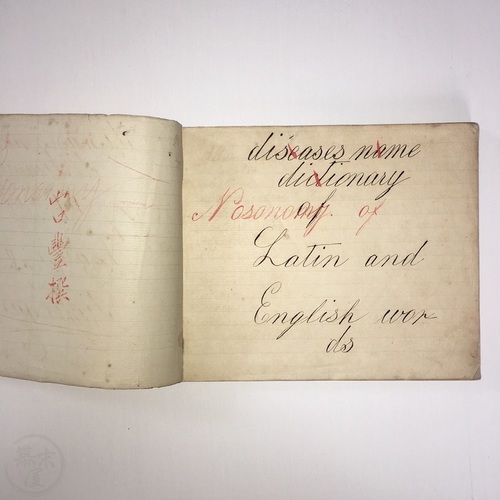 山口豐撰
diseases name
dictionary
of
Nosonomy. of
Latin and
English wor
ds